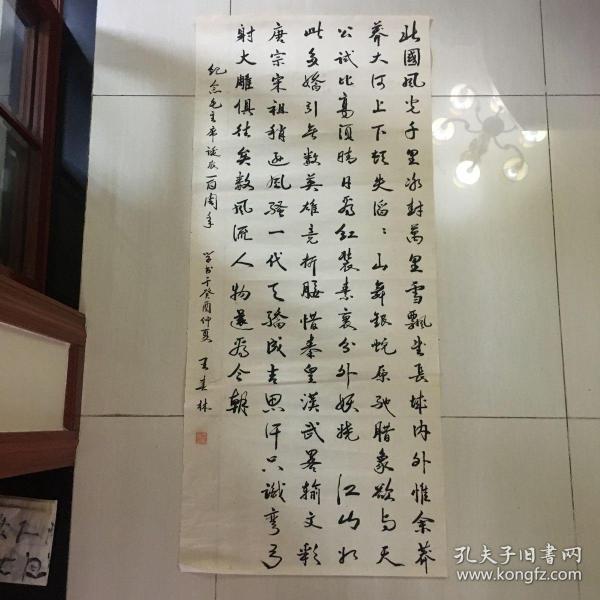 北國風光千里冰封萬里雪飄望長城内外惟余莽
莽大河上下頓失滔〻山舞銀蛇原馳腊象欲与天
公試比高須晴日看紅裝素裹分外妖嬈 江山如
此多嬌引无數英雄竞折腰惜秦皇漢武畧输文彩
唐宗宋祖稍逊風骚一代天驕成吉思汗只識彎弓
射大雕俱往矣數風流人物還看今朝
纪念毛主席诞辰一百周年
于癸酉仲夏
孔夫子旧书网
www.kongfz.com